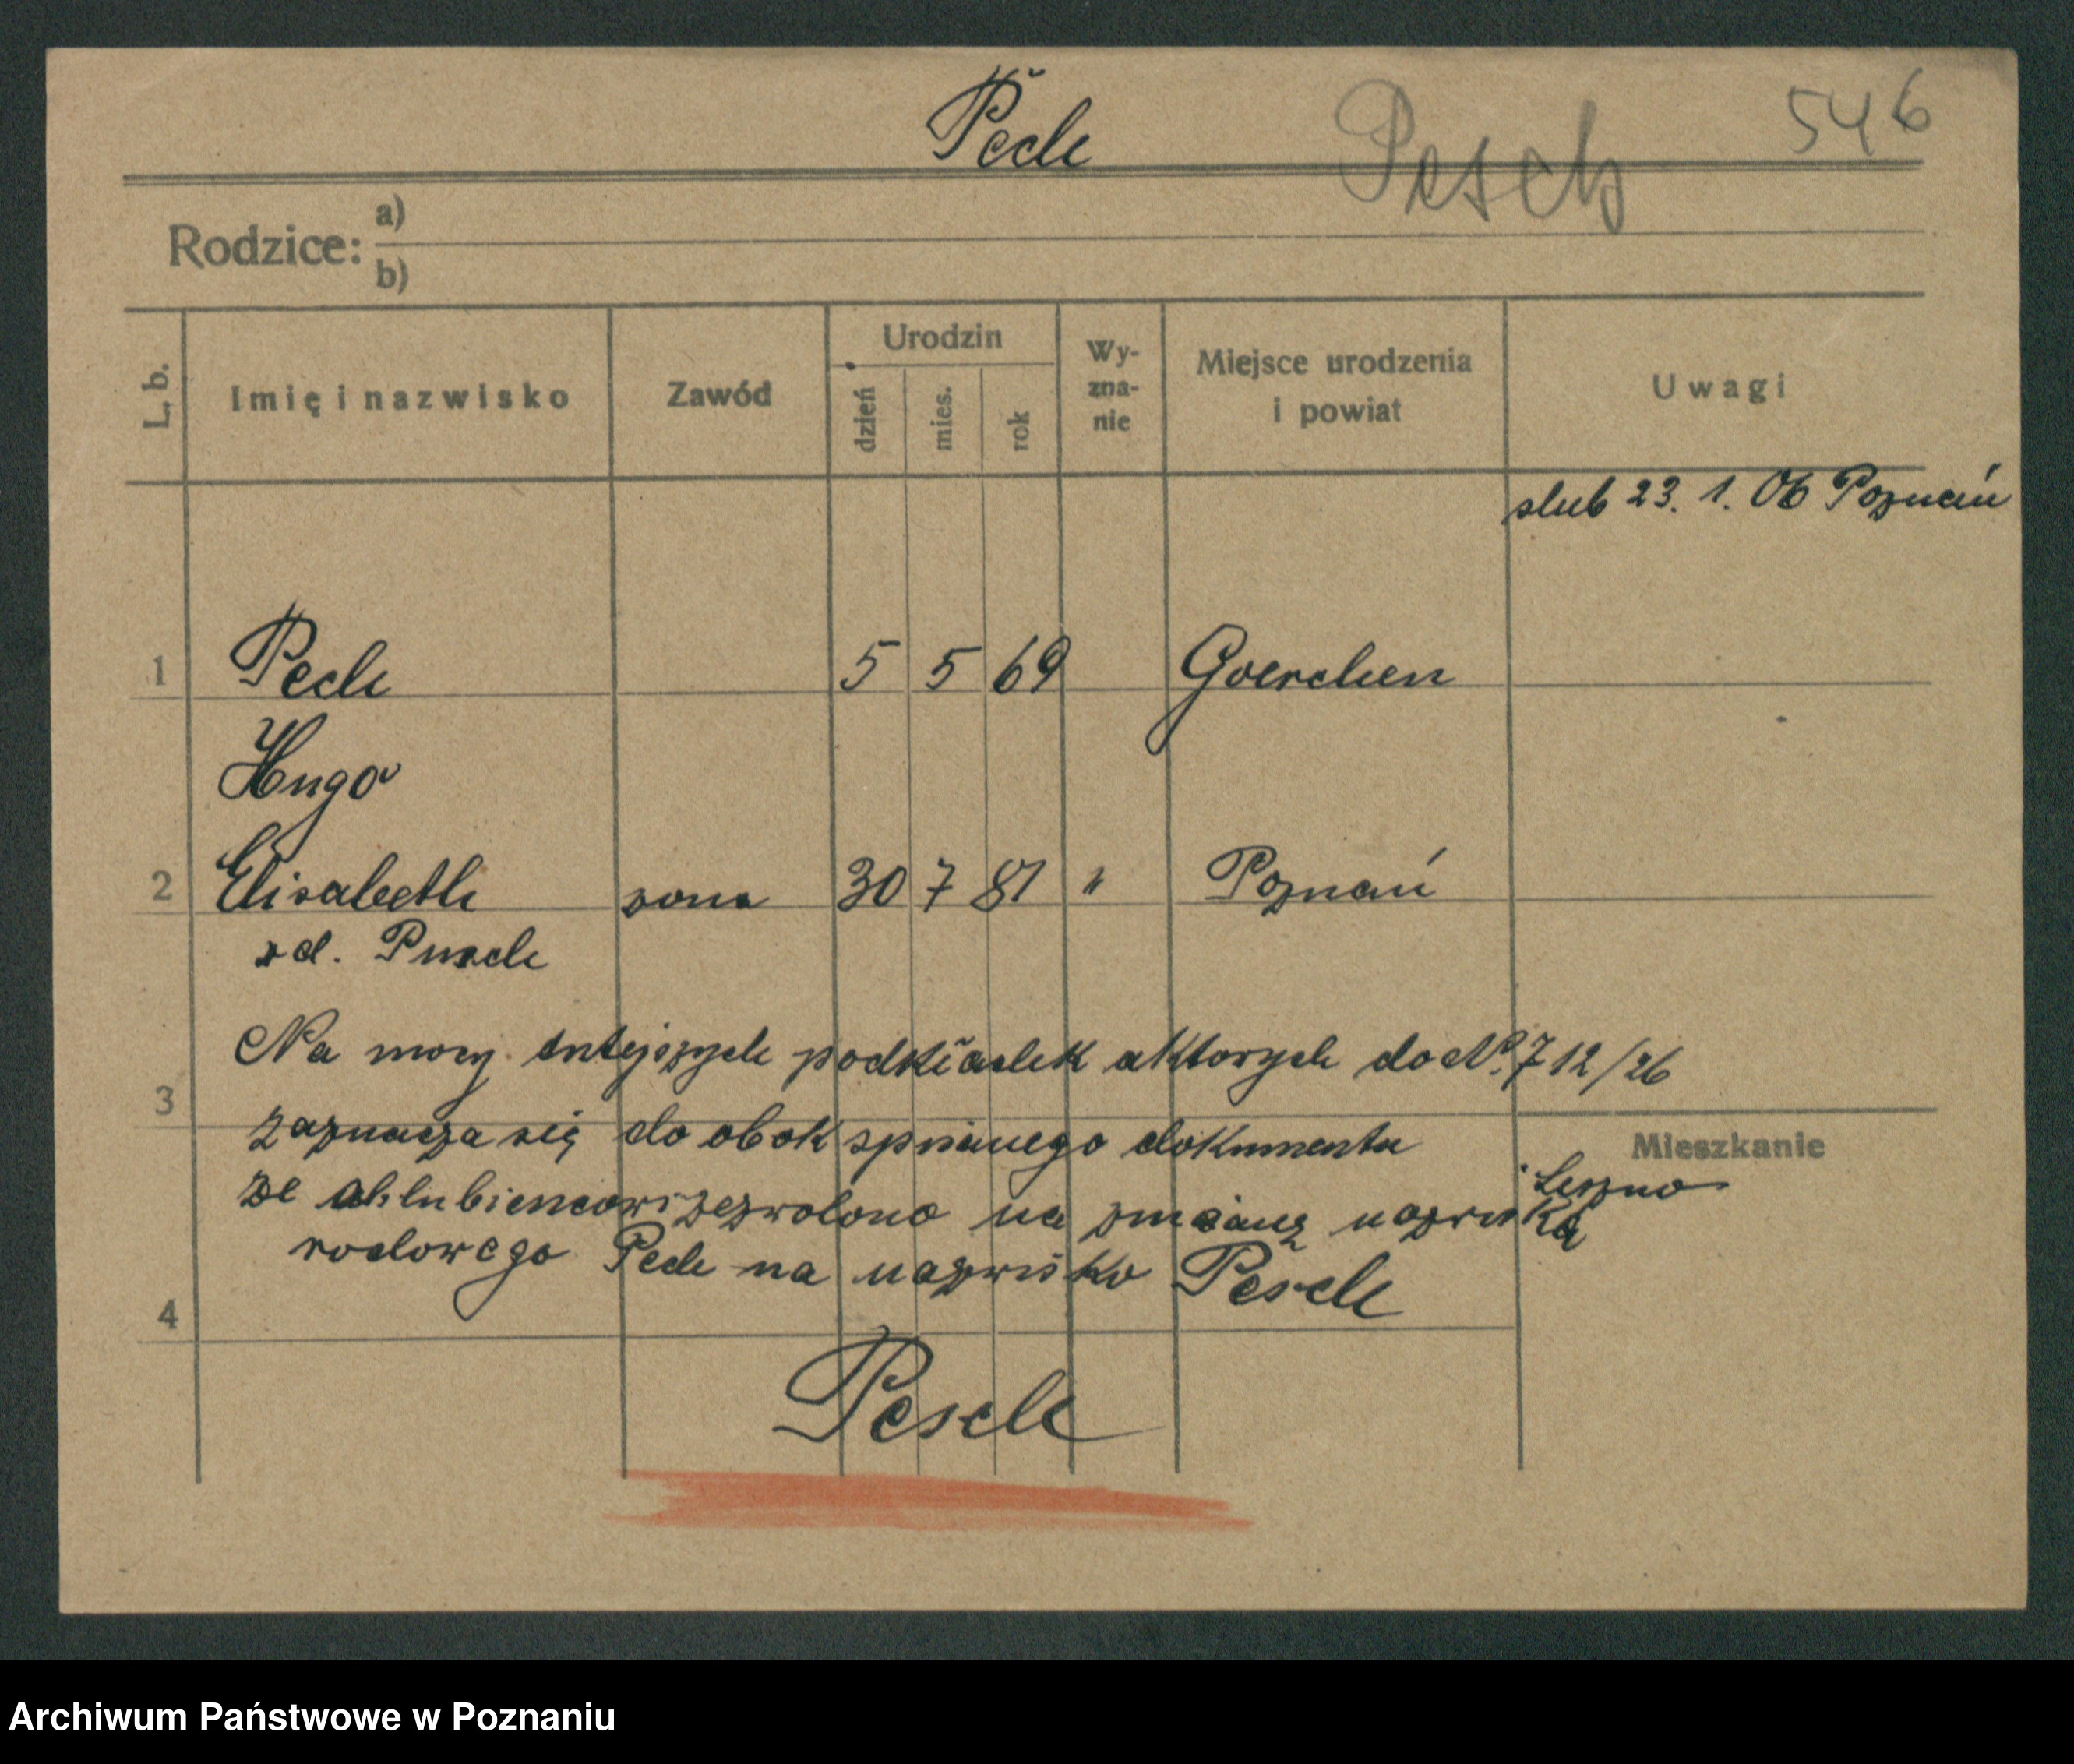 Pech
Pesch
546
Rodzice:
a)
b)
L. b.
Imię i nazwisko
Zawód
Urodzin
dzień
mies.
rok
Wy-
zna-
nie
Miejsce urodzenia
i powiat
Uwagi
slub 23. 1. 06 Poznań
1 Pech 5 5 69 Goerchen
Hugo
2 Elisabeth zona 30 7 81 " Poznań
zd. Pusch
Na mocy tutejszych podkładek aktowych do No. 712/26
3
zaznacza się do obok spisanego dokumentu
Mieszkanie
Leszno
ze oblubiencowi zezwolono na zmianę nazwiska
rodowego Pech na nazwisko Pesch
4
Pesch
Archiwum Państwowe w Poznaniu